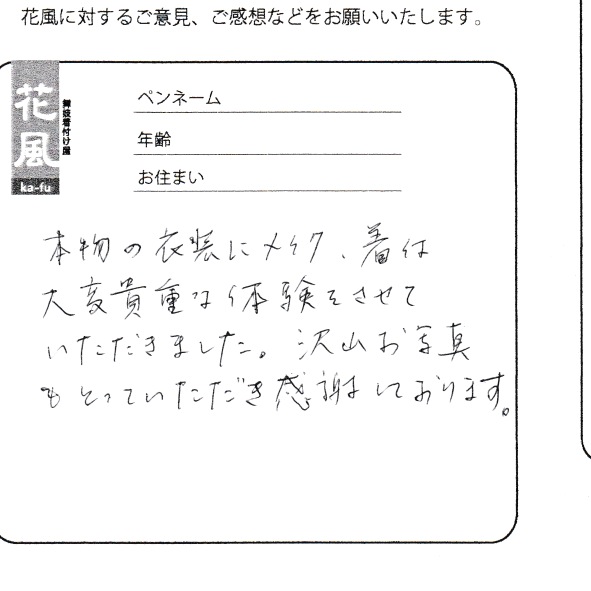 花風に対するご意見、ご感想などをお願いいたします。
花風
舞妓着付け屋
ka-fu
ペンネーム
年齢
お住まい
本物の衣装にメイク、着付
大変貴重な体験をさせて
いただきました。沢山お写真
もとっていただき感謝しております。